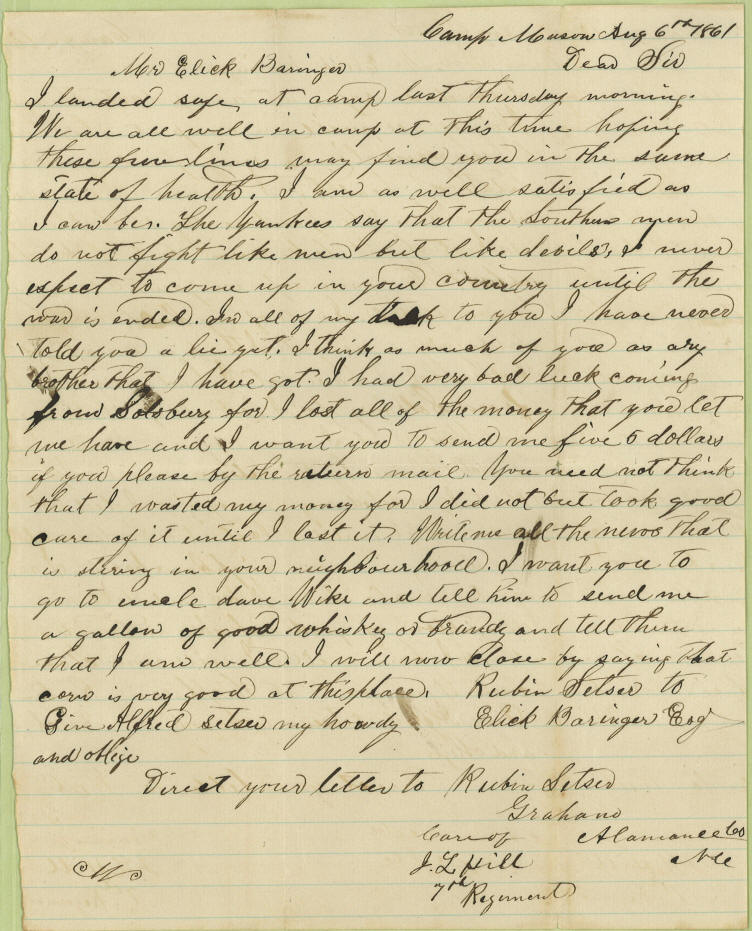 Camp Mason Aug 6th 1861
Mr Elick Baringer Dear Sir
I landed safe at camp last thursday morning.
We are all well in camp at this time hoping
these few lines may find you in the same
state of health. I am as well satisfied as
I can be. The Yankees say that the Southern men
do not fight like men but like devils, I never
expect to come up in your country until the
war is ended. In all of my talk to you I have never
told you a lie yet. I think as much of you as any
brother that I have got. I had very bad luck coming
from Solsbury for I lost all of the money that you let
me have and I want you to send me five 5 dollars
if you please by the return mail. You need not think
that I wasted my money for I did not but took good
care of it until I lost it. Write me all the news that
is stiring in your neighbourhood. I want you to
go to uncle dave Wike and tell him to send me
a gallon of good whiskey or brandy and tell them
that I am well. I will now close by saying that
corn is very good at this place. Rubin Setser to
Give Alfred setser my howdy Elick Baringer Esq
and oblige
Direct your letter to Rubin Setser
Graham
Care of Alamance Co
J. L. Hill N C
7th Regiment